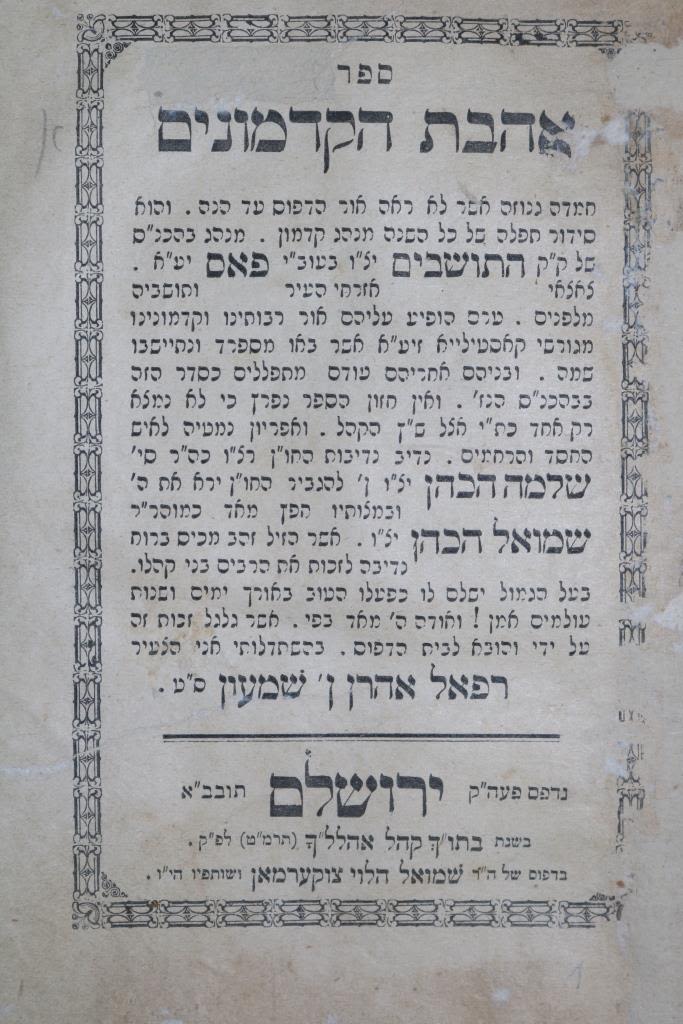 ספר
אהבת הקדמונים
חמדה גנוזה אשר לא ראה אור הדפוס עד הנה . והוא
סידור תפלה של כל השנה מנהג קדמון . מנהג בהכנ״ס
של ק״ק התושבים יצ״ו בעוב״י פאס יע״א .
צאצאי אזרחי העיר ותושביה
מלפנים . טרם הופיע עליהם אור רבותינו וקדמונינו
מגורשי קאסטילייא זיע״א אשר באו מספרד ונתיישבו
שמה . ובניהם אחריהם עודם מתפללים כסדר הזה
בבהכנ״ס הנז׳ . ואין חזון הספר נפרץ כי לא נמצא
רק אחד כת״י אצל ש״ץ הקהל . ואפריון נמטיה לאיש
החסד והרחמים . נדיב נדיבות החו״ן רצ״ו כה״ר סי׳
שלמה הכהן יצ״ו ן׳ להגביר החו״ן ירא את ה׳
ובמצותיו חפץ מאד כמוהר״ר
שמואל הכהן יצ״ו . אשר הזיל זהב מכיס ברוח
נדיבה לזכות את הרבים בני קהלו .
בעל הגמול ישלם לו כפעלו הטוב באורך ימים ושנות
עולמים אמן ! ואודה ה׳ מאד בפי . אשר גלגל זכות זה
על ידי והובא לבית הדפוס . בהשתדלותי אני הצעיר
רפאל אהרן ן׳ שמעון ס״ט .
נדפס פעה״ק ירושלם תובב״א
בשנת בתו״ך קהל אהלל״ך (תרמ״ט) לפ״ק .
בדפוס של ה״ר שמואל הלוי צוקערמאן ושותפיו הי״ו .